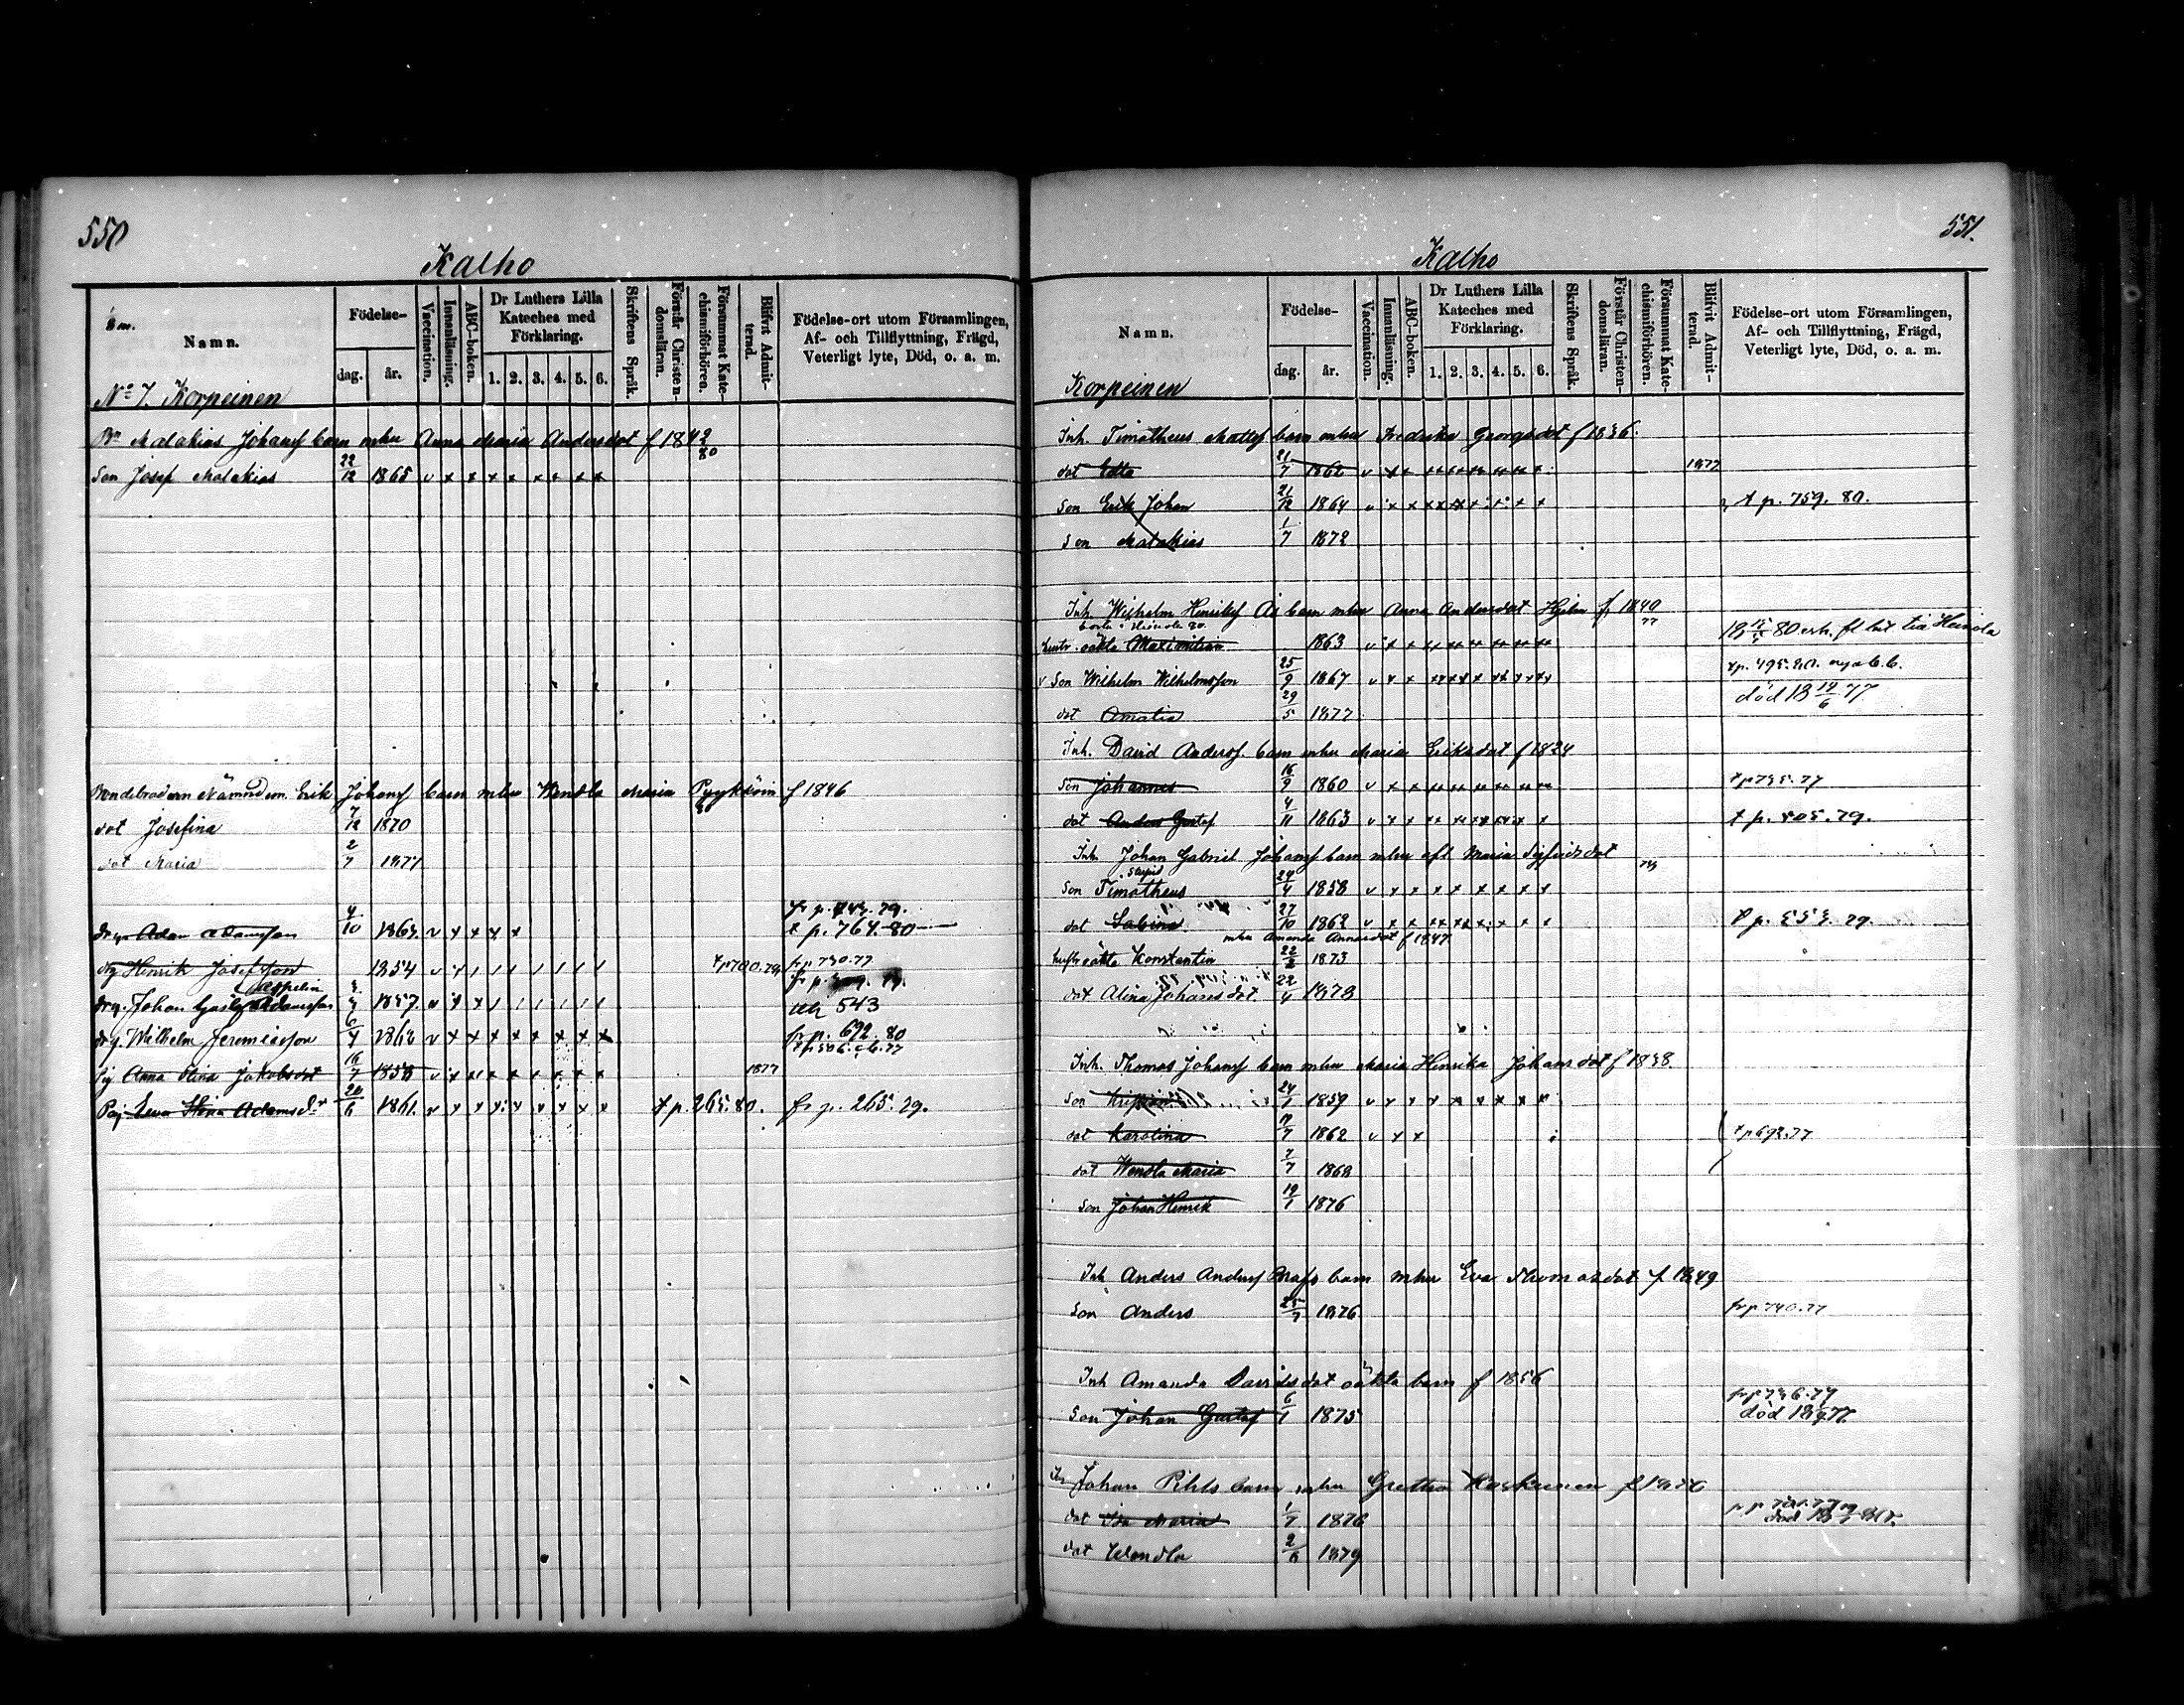 550
Kalho
Namn.
Födelse-
dag.
år.
Vaccination.
Innanläsning.
ABC-boken.
Dr Luthers Lilla Kateches med Förklaring.
1. 2. 3. 4. 5. 6.
Skriftens Språk.
Förstår Christendomsläran.
Försummat Katechismiförhören.
Blifvit Admitterad.
Födelse-ort utom Församlingen, Af- och Tillflyttning, Frägd, Veterligt lyte, Död, o. a. m.
No 7. Korpeinen
Malakias Johanss barn mhu Anna Maria Andersdot f 1842
80
Son Josef Malakias 22/12 1865 v x x x x x x x x
Erik Johanss barn mhu Wendla Maria f 1846
dot Josefina 7/12 1870
dot Maria 2/7 1877
Adam Adamsson 4/10 1863 v x x x x
t p. 764. 80
drg Henrik Josefsson 1854 v x / / / / / / / t p 700. 79 fr p 730. 77
drg. Johan Gustaf Adamsson 1857. v x x / / / / / /
543
drg. Wilhelm Jeremiasson 6/4 1862 v x x x x x x x x fr p. 692. 80
pig Anna Stina Jakobsdot 16/7 1858 v x x x x x x x x 1877
Pig Eva Stina Adamsdr 20/6 1861. v x x x x x x x x t p. 265. 80. fr p. 265. 79.
551.
Kalho
Namn.
Födelse-
dag.
år.
Vaccination.
Innanläsning.
ABC-boken.
Dr Luthers Lilla Kateches med Förklaring.
1. 2. 3. 4. 5. 6.
Skriftens Språk.
Förstår Christendomsläran.
Försummat Katechismiförhören.
Blifvit Admitterad.
Födelse-ort utom Församlingen, Af- och Tillflyttning, Frägd, Veterligt lyte, Död, o. a. m.
Korpeinen
Inh. Timotheus Mattss barn mhu Fredrika Georgsdot f 1836.
dot Edla 21/7 1862 1877
Son Erik Johan 21/12 1864 t p. 759. 80.
Son Malakias 1/7 1872
Inh. Wilhelm Henrikss barn mhu Anna Andersdot f 1840
77
oäkta Maximilian 1863
Son Wilhelm Wilhelmsson 25/9 1867
död 18 19/6 77
dot Amalia 29/5 1877
Inh. David Anderss barn mhu Maria Eriksdot f 1824
Son Johannes 16/9 1860 t p 735. 77
dot Anders Gustaf 4/11 1863 t p. 505. 79.
Inh Johan Gabriel Johanss barn mhu afl Maria Sigfridsdot
Son Timotheus 24/4 1858
dot Sabina 27/10 1862 t p. 553. 79.
mhu Amanda Annasdot f 1847
oäkta Konstantin 1873
dot Alina Johansdot 22/4 1878
Inh. Thomas Johanss barn mhu Maria Henrika Johansdot f 1838.
Son 24/1 1859
dot Karolina 1862 t p 692. 77
dot Wendla Maria 7/7 1868
Son Johan Henrik 19/1 1876
Inh Anders Anderss barn mhu Eva Thomasdot f 1849
Son Anders 1876 fr p 740. 77
Inh Amanda Davidsdot oäkta barn f 1856
fr p 736. 77
Son Johan Gustaf 6/1 1875 död
Johan Pihls barn mhu Gretha
dot Ida Maria 1/7 1876
dot Wendla 1879